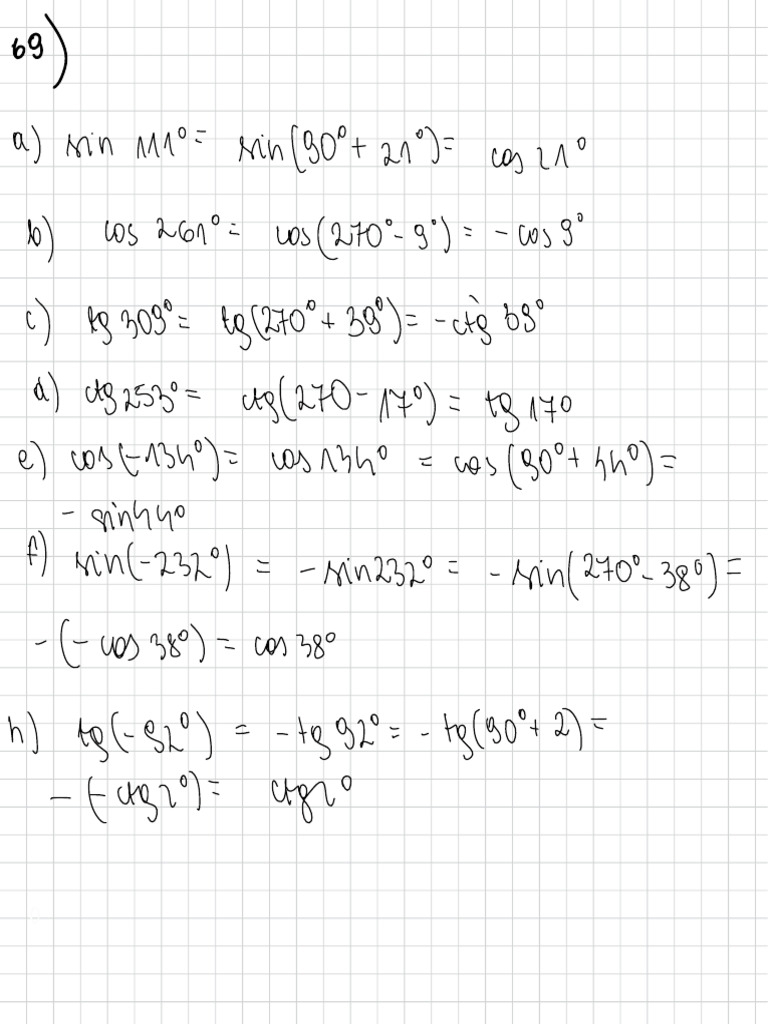 69)
a) sin 111° = sin(90° + 21°) = cos 21°
b) cos 261° = cos(270° - 9°) = - cos 9°
c) tg 309° = tg(270° + 39°) = - ctg 39°
d) ctg 253° = ctg(270 - 17°) = tg 17°
e) cos(-134°) = cos 134° = cos(90° + 44°) =
- sin 44°
f) sin(-232°) = - sin 232° = - sin(270° - 38°) =
- (- cos 38°) = cos 38°
h) tg(-92°) = - tg 92° = - tg(90° + 2) =
- (- ctg 2°) = ctg 2°